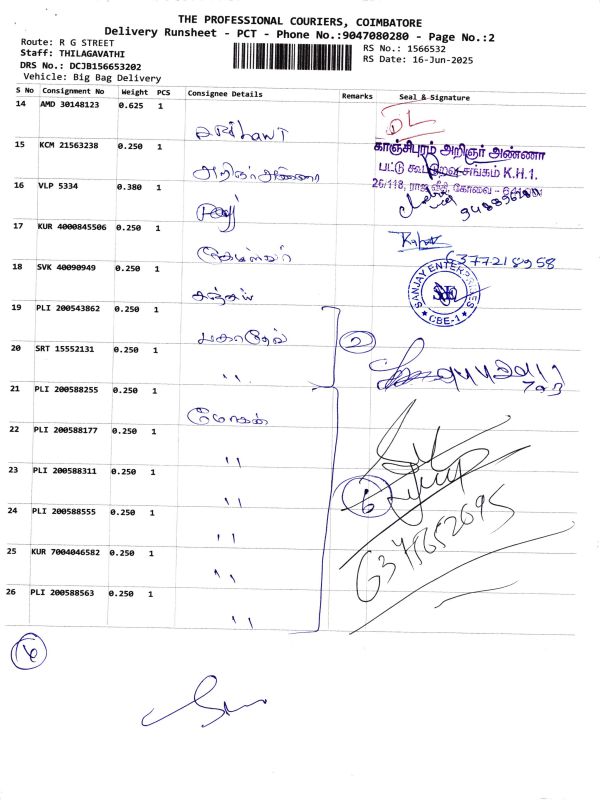 THE PROFESSIONAL COURIERS, COIMBATORE
Delivery Runsheet - PCT - Phone No.:9047080280 - Page No.:2
Route: R G STREET
Staff: THILAGAVATHI
DRS No.: DCJB156653202
Vehicle: Big Bag Delivery
RS No.: 1566532
RS Date: 16-Jun-2025
S No Consignment No Weight PCS Consignee Details Remarks Seal & Signature
14 AMD 30148123 0.625 1 DL
15 KCM 21563238 0.250 1 அறிஞர் அண்ணா
காஞ்சிபுரம் அறிஞர் அண்ணா
பட்டு கூட்டுறவு சங்கம் K.H.1.
26/118, ராஜ வீதி, கோவை -
16 VLP 5334 0.380 1
17 KUR 4000845506 0.250 1
6377218958
18 SVK 40090949 0.250 1 சஞ்சய்
SANJAY ENTERPRISES
CBE-1
19 PLI 200543862 0.250 1 மகாதேவ் 2
20 SRT 15552131 0.250 1 "
21 PLI 200588255 0.250 1 மோகன்
22 PLI 200588177 0.250 1 "
23 PLI 200588311 0.250 1 " 6
24 PLI 200588555 0.250 1 "
25 KUR 7004046582 0.250 1 "
26 PLI 200588563 0.250 1 "